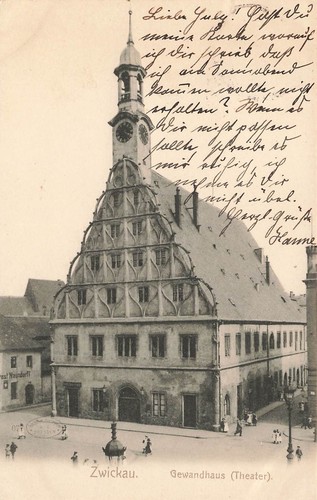 Liebe July! Hast Du
meine Karte worauf
ich Dir schrieb daß
ich am Sonnabend
kommen wollte, nicht
erhalten? Wenn es
Dir nicht passen
sollte schreibe es
mir ruhig, ich
nehme es Dir
nicht übel.
Herzl. Grüße
Hanne
Zwickau. Gewandhaus (Theater).